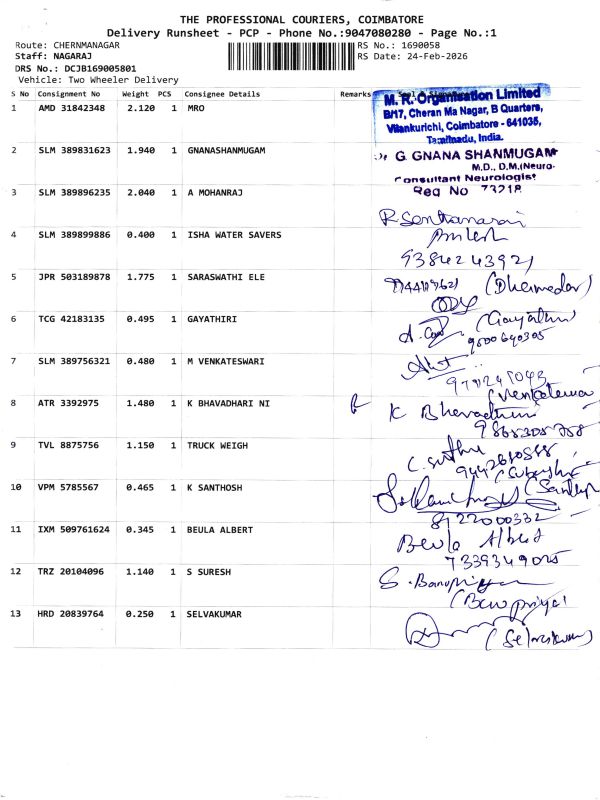 THE PROFESSIONAL COURIERS, COIMBATORE
Delivery Runsheet - PCP - Phone No.:9047080280 - Page No.:1
Route: CHERNMANAGAR RS No.: 1690058
Staff: NAGARAJ RS Date: 24-Feb-2026
DRS No.: DCJB169005801
Vehicle: Two Wheeler Delivery
S No Consignment No Weight PCS Consignee Details Remarks
1 AMD 31842348 2.120 1 MRO
M. R. Organisation Limited
BH7, Cheran Ma Nagar, B Quarters,
Vilankurichi, Coimbatore - 641035,
Tamilnadu, India.
2 SLM 389831623 1.940 1 GNANASHANMUGAM
Dr G. GNANA SHANMUGAM
M.D., D.M.(Neuro-
Consultant Neurologist
Reg No 73218
3 SLM 389896235 2.040 1 A MOHANRAJ
4 SLM 389899886 0.400 1 ISHA WATER SAVERS
9384243921
5 JPR 503189878 1.775 1 SARASWATHI ELE
6 TCG 42183135 0.495 1 GAYATHIRI
7 SLM 389756321 0.480 1 M VENKATESWARI
8 ATR 3392975 1.480 1 K BHAVADHARI NI
K
9 TVL 8875756 1.150 1 TRUCK WEIGH
10 VPM 5785567 0.465 1 K SANTHOSH
8122000332
11 IXM 509761624 0.345 1 BEULA ALBERT
Beula Albert
7339349025
12 TRZ 20104096 1.140 1 S SURESH
S. Banupriya
13 HRD 20839764 0.250 1 SELVAKUMAR
(Selvakumar)